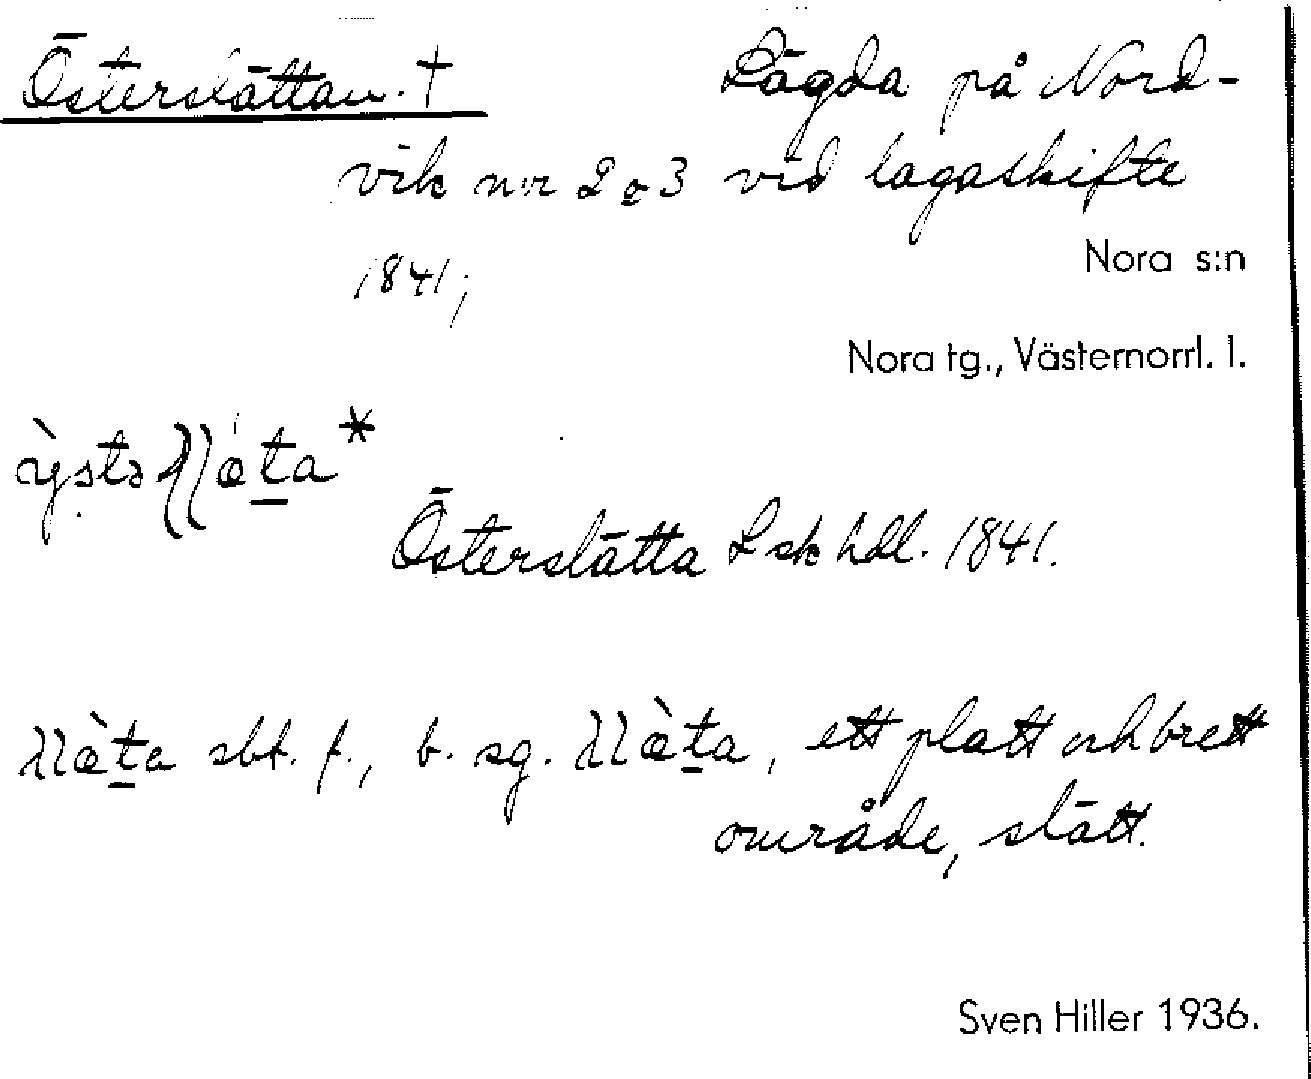 Österslättan. † Lägda på Nord-
vik n:r 2 o 3 vid lagaskifte
1841;
Nora s:n
Nora tg., Västernorrl. l.
Österslätta Lsk hdl. 1841.
sbt. f., b. sg. , ett platt och brett
område, slätt.
Sven Hiller 1936.